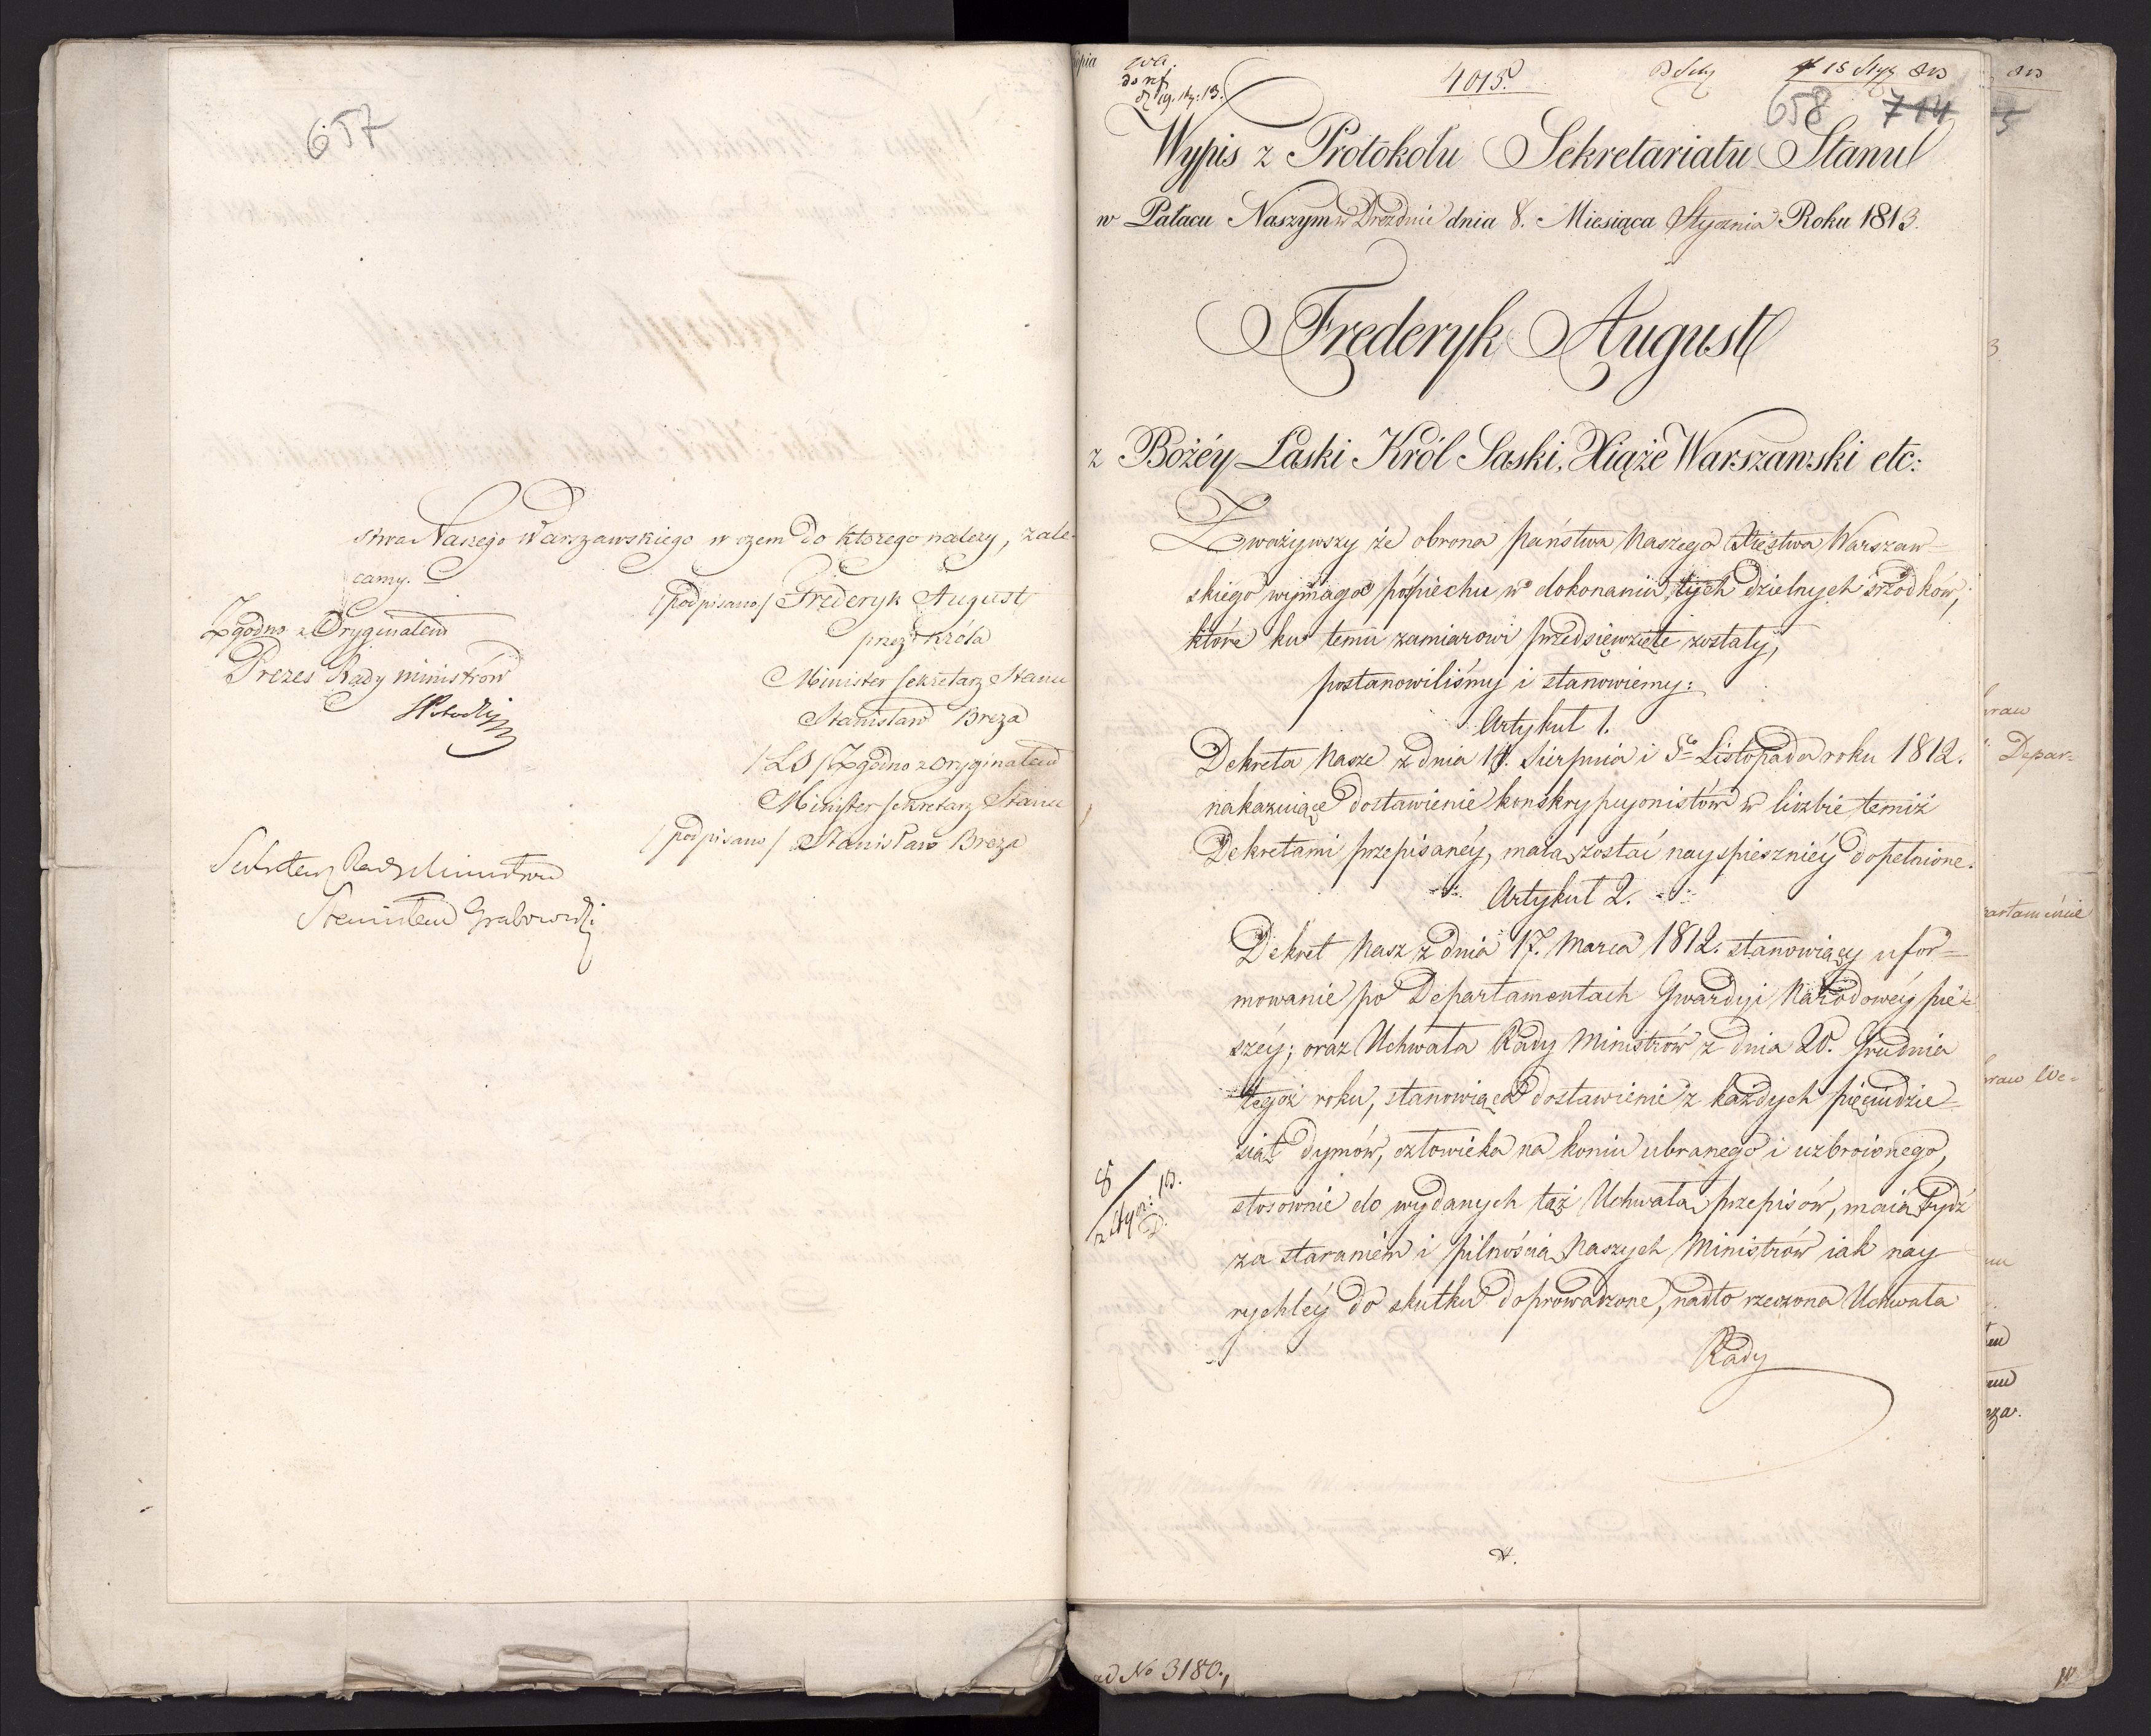 657
stwa Naszego Warszawskiego w czem do ktorego należy, zale-
camy.
/podpisano/ Frideryk August
Zgodno z Oryginałem
przez Króla
Prezes Rady Ministrów
Minister Sekretarz Stanu
Stanisław Breza
/LS/ Zgodno z Oryginałem
Minister Sekretarz Stanu
/podpisano/ Stanisław Breza
Sekretarz Rady Ministrów
Stanisław Grabowski
4015.
15 Stycz 813
658 714
Wypis z Protokołu Sekretariatu Stanu
w Pałacu Naszym w Dreźdnie dnia 8. Miesiąca Stycznia Roku 1813.
Frederyk August
z Bożéy Łaski Król Saski, Xiąże Warszawski etc:
Zważywszy że obrona państwa Naszego Xięstwa Warszaw-
skiego wymaga pośpiechu w dokonaniu tych dzielnych śrzodków,
które ku temu zamiarowi przedsięwzięte zostały,
postanowiliśmy i stanowiemy:
Artykuł 1.
Dekreta Nasze z dnia 14. Sierpnia i 5go Listopada roku 1812.
nakazuiące dostawienie konskrypcyonistów w liczbie temiż
Dekretami przepisanéy, maią zostać nayspieszniéy dopełnione.
Artykuł 2.
Dekret Nasz z dnia 17. Marca 1812. stanowiący ufor-
mowanie po Departamentach Gwardyi Narodowéy pie-
széy; oraz Uchwała Rady Ministrów z dnia 20. Grudnia
tegoż roku, stanowiąca dostawienie z każdych pięciudzie-
siąt dymów, człowieka na koniu ubranego i uzbroionego,
stosownie do wydanych tąż Uchwałą przepisów, maią bydź
za staraniem i pilnością Naszych Ministrów iak nay
rychléy do skutku doprowadzone, nadto rzeczona Uchwała
Rady
ad No 3180.